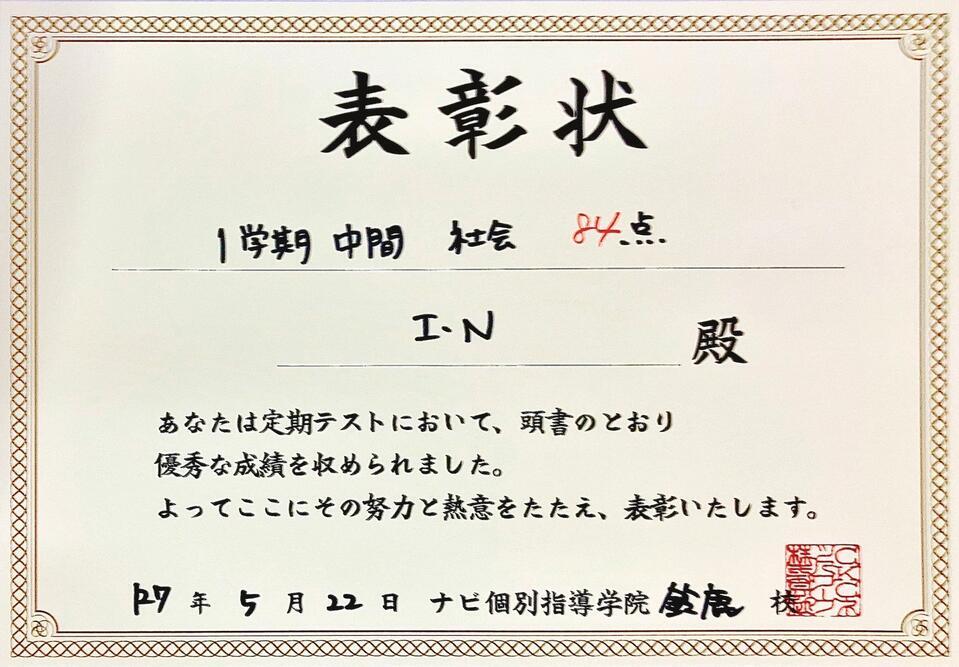 表彰状
1学期 中間 社会 84点
I・N 殿
あなたは定期テストにおいて、頭書のとおり
優秀な成績を収められました。
よってここにその努力と熱意をたたえ、表彰いたします。
R7年5月22日 ナビ個別指導学院 鈴鹿 校